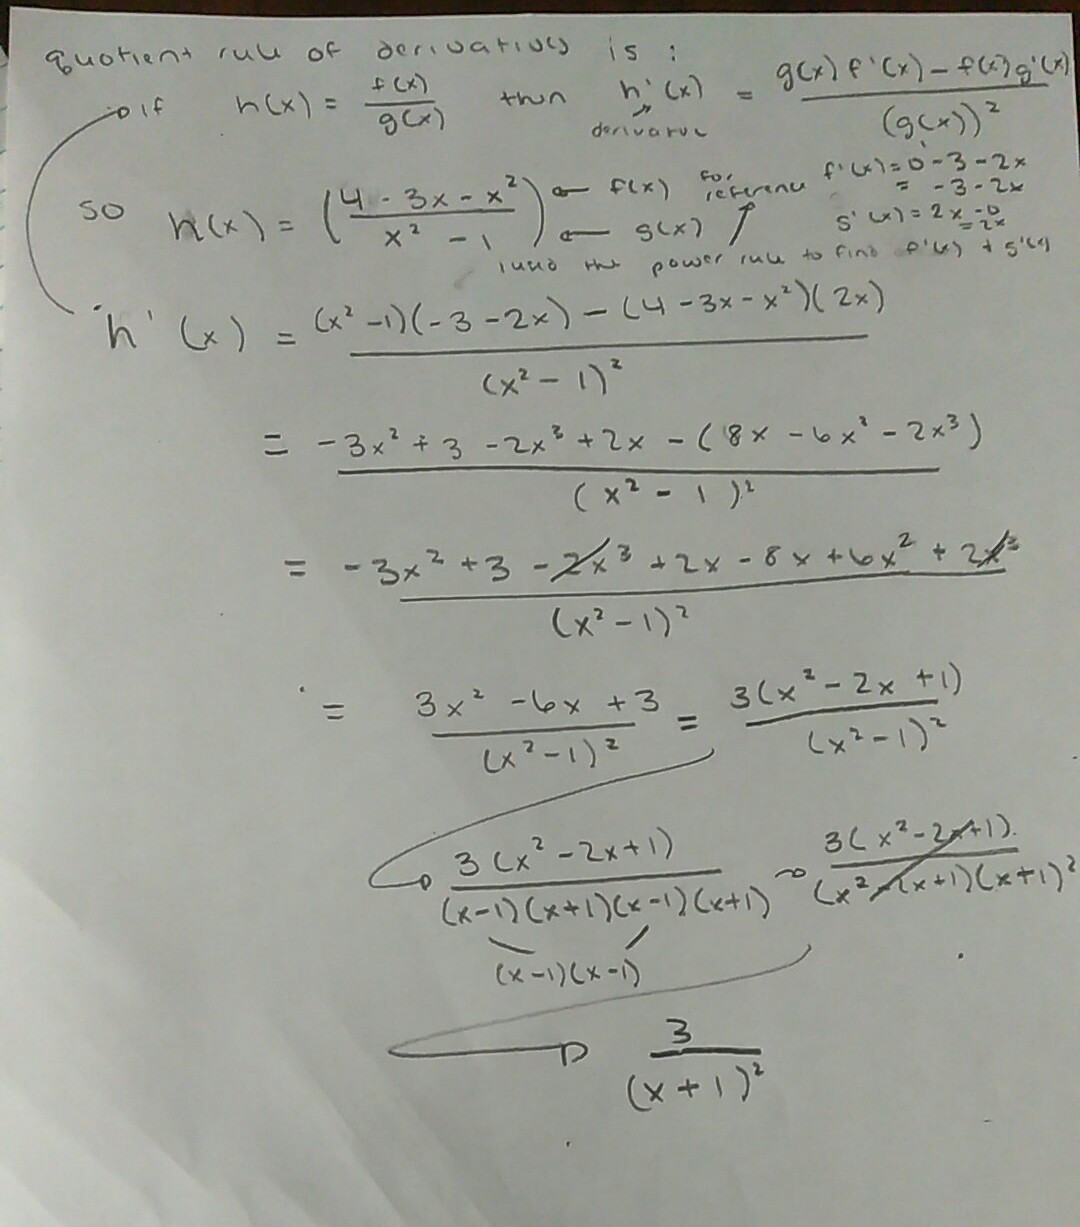 quotient rule of derivatives is :
if h(x) = f(x)/g(x) then h'(x) = (g(x) f'(x) - f(x) g'(x))/(g(x))²
derivative
so h(x) = ((4 - 3x - x²)/(x² - 1)) ← f(x) ← g(x)
for reference f'(x) = 0 - 3 - 2x
= -3 - 2x
g'(x) = 2x - 0
= 2x
I used the power rule to find f'(x) + g'(x)
h'(x) = ((x² - 1)(-3 - 2x) - (4 - 3x - x²)(2x))/(x² - 1)²
= (-3x² + 3 - 2x³ + 2x - (8x - 6x² - 2x³))/(x² - 1)²
= (-3x² + 3 - 2x³ + 2x - 8x + 6x² + 2x³)/(x² - 1)²
= (3x² - 6x + 3)/(x² - 1)² = 3(x² - 2x + 1)/(x² - 1)²
3(x² - 2x + 1)/(x-1)(x+1)(x-1)(x+1) → 3(x² - 2x + 1)/(x² - 2x + 1)(x+1)²
(x-1)(x-1)
3/(x + 1)²